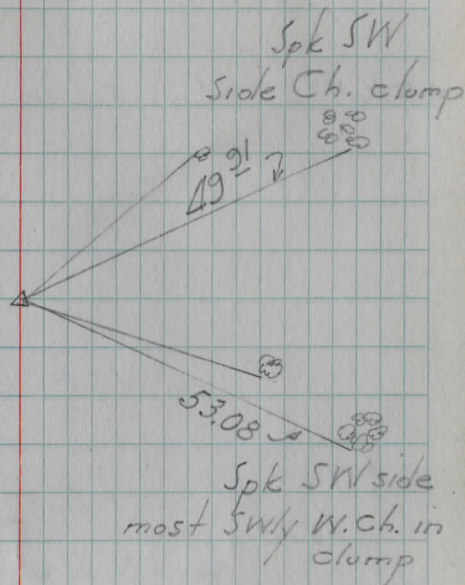 Spk SW
side Ch. clump
49 91
53.08
Spk SW side
most SWly W.Ch. in
clump